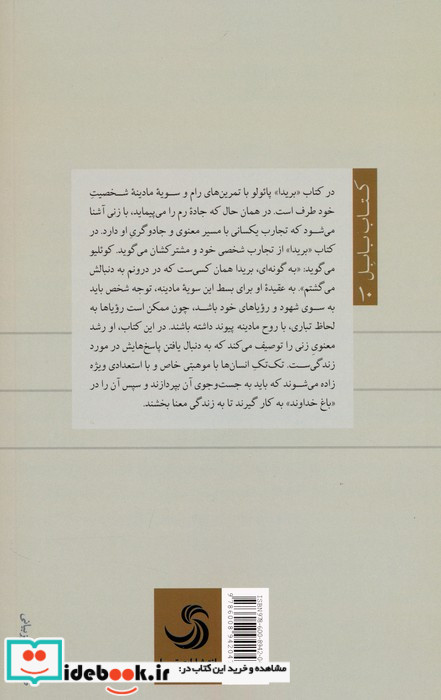 در کتاب «بریدا» پائولو با تمرین‌های رام و سویهٔ مادینهٔ شخصیتِ
خود طرف است. در همان حال که جادهٔ رم را می‌پیماید، با زنی آشنا
می‌شود که تجارب یکسانی با مسیر معنوی و جادوگریِ او دارد. در
کتاب «بریدا» از تجارب شخصی خود و مشترکشان می‌گوید. کوئلیو
می‌گوید: «به گونه‌ای، بریدا همان کسی‌ست که در درونم به دنبالش
می‌گشتم». به عقیدهٔ او برای بسط این سویهٔ مادینه، توجه شخص باید
به سوی شهود و رؤیاهای خود باشد، چون ممکن است رؤیاها به
لحاظ تباری، با روح مادینه پیوند داشته باشند. در این کتاب، او رشد
معنویِ زنی را توصیف می‌کند که به دنبال یافتن پاسخ‌هایش در مورد
زندگی‌ست. تک‌تکِ انسان‌ها با موهبتی خاص و با استعدادی ویژه
زاده می‌شوند که باید به جست‌وجوی آن بپردازند و سپس آن را در
«باغ خداوند» به کار گیرند تا به زندگی معنا بخشند.
کتاب بابل
مشاهده و خرید این کتاب در:
idebook.ir